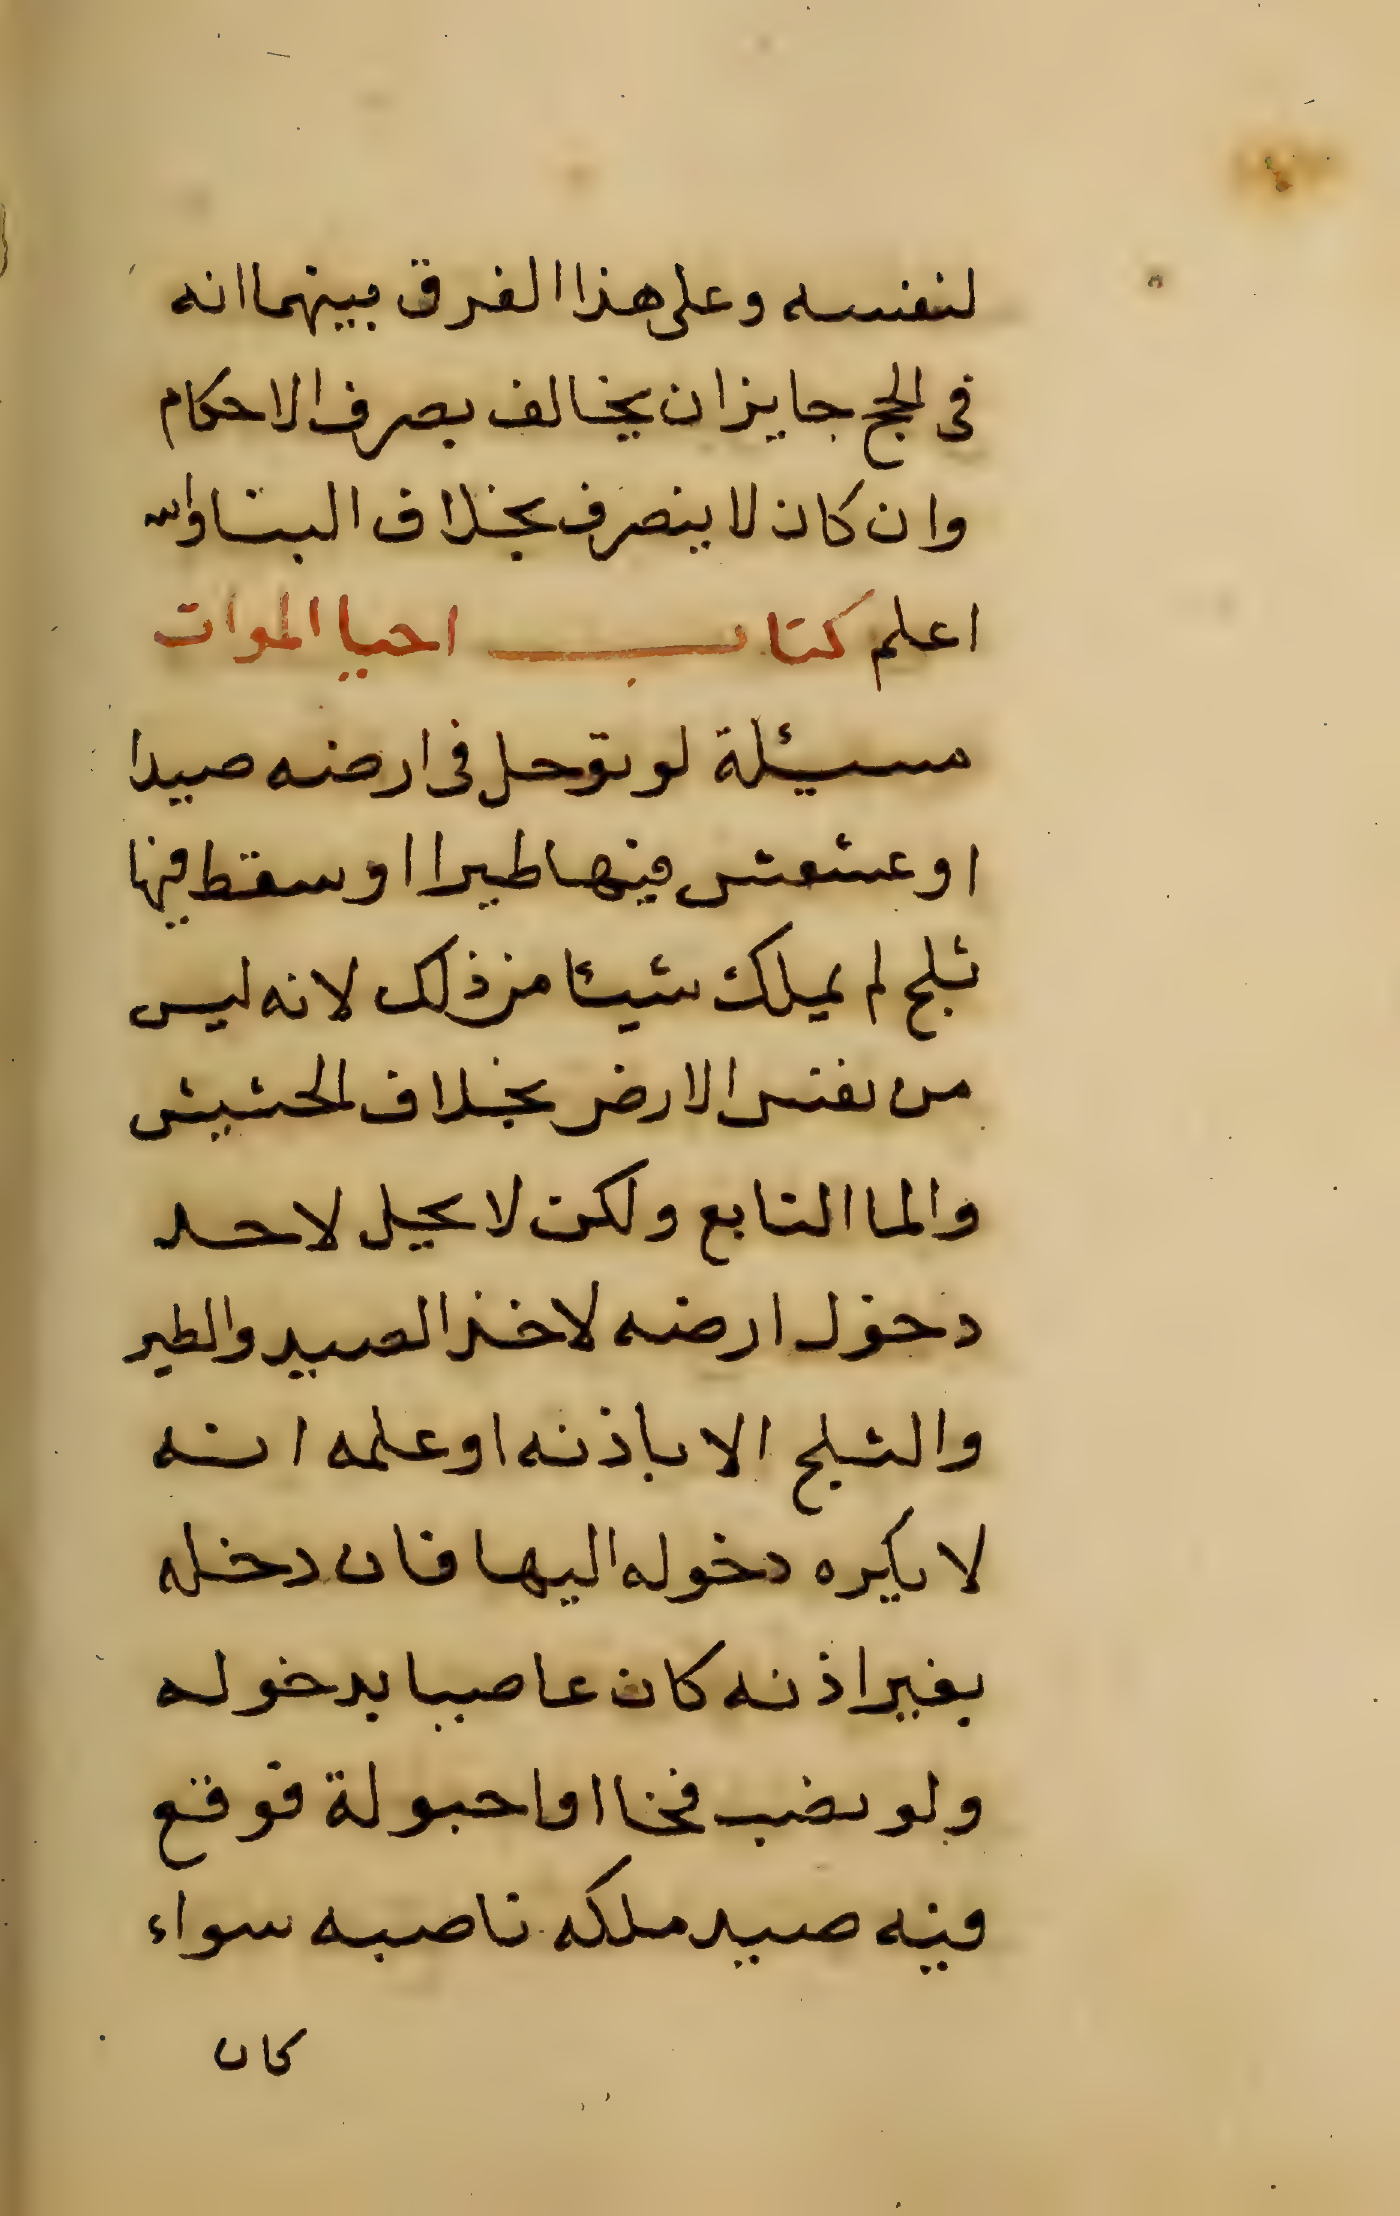 لنفسه وعلى هذا الفرق بينهما انه
فى الحج جايز ان يخالف بصرف الاحكام
وان كان لا ينصرف بخلاف البنا والله
اعلم كتاب احيا الموات
مسئلة لو توحل فى ارضه صيدا
او عشعش فيها طيرا او سقط فيها
ثلج لم يملك شيئا من ذلك لانه ليس
من نفس الارض بخلاف الحشيش
والما النابع ولكن لا يحل لاحد
دخول ارضه لاخذ الصيد والطير
والثلج الا باذنه او علمه انه
لا يكره دخوله اليها فان دخله
بغير اذنه كان عاصيا بدخوله
ولو نصب فخا او احبولة فوقع
فيه صيد ملكه ناصبه سواء
كان